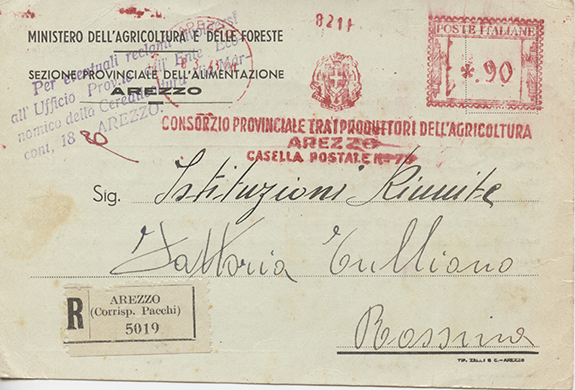 8211
POSTE ITALIANE
*.90
MINISTERO DELL'AGRICOLTURA E DELLE FORESTE
SEZIONE PROVINCIALE DELL'ALIMENTAZIONE
AREZZO
Per eventuali reclami
all'Ufficio Prov.le dell'Ente Eco-
nomico della Cerealicoltura
cont, 18 - AREZZO
CONSORZIO PROVINCIALE TRA I PRODUTTORI DELL'AGRICOLTURA
AREZZO
CASELLA POSTALE N° 79
Sig. Istituzioni Riunite
Fattoria Tulliano
Rossina
R
AREZZO
(Corrisp. Pacchi)
5019
TIP. ZELLI & C. - AREZZO